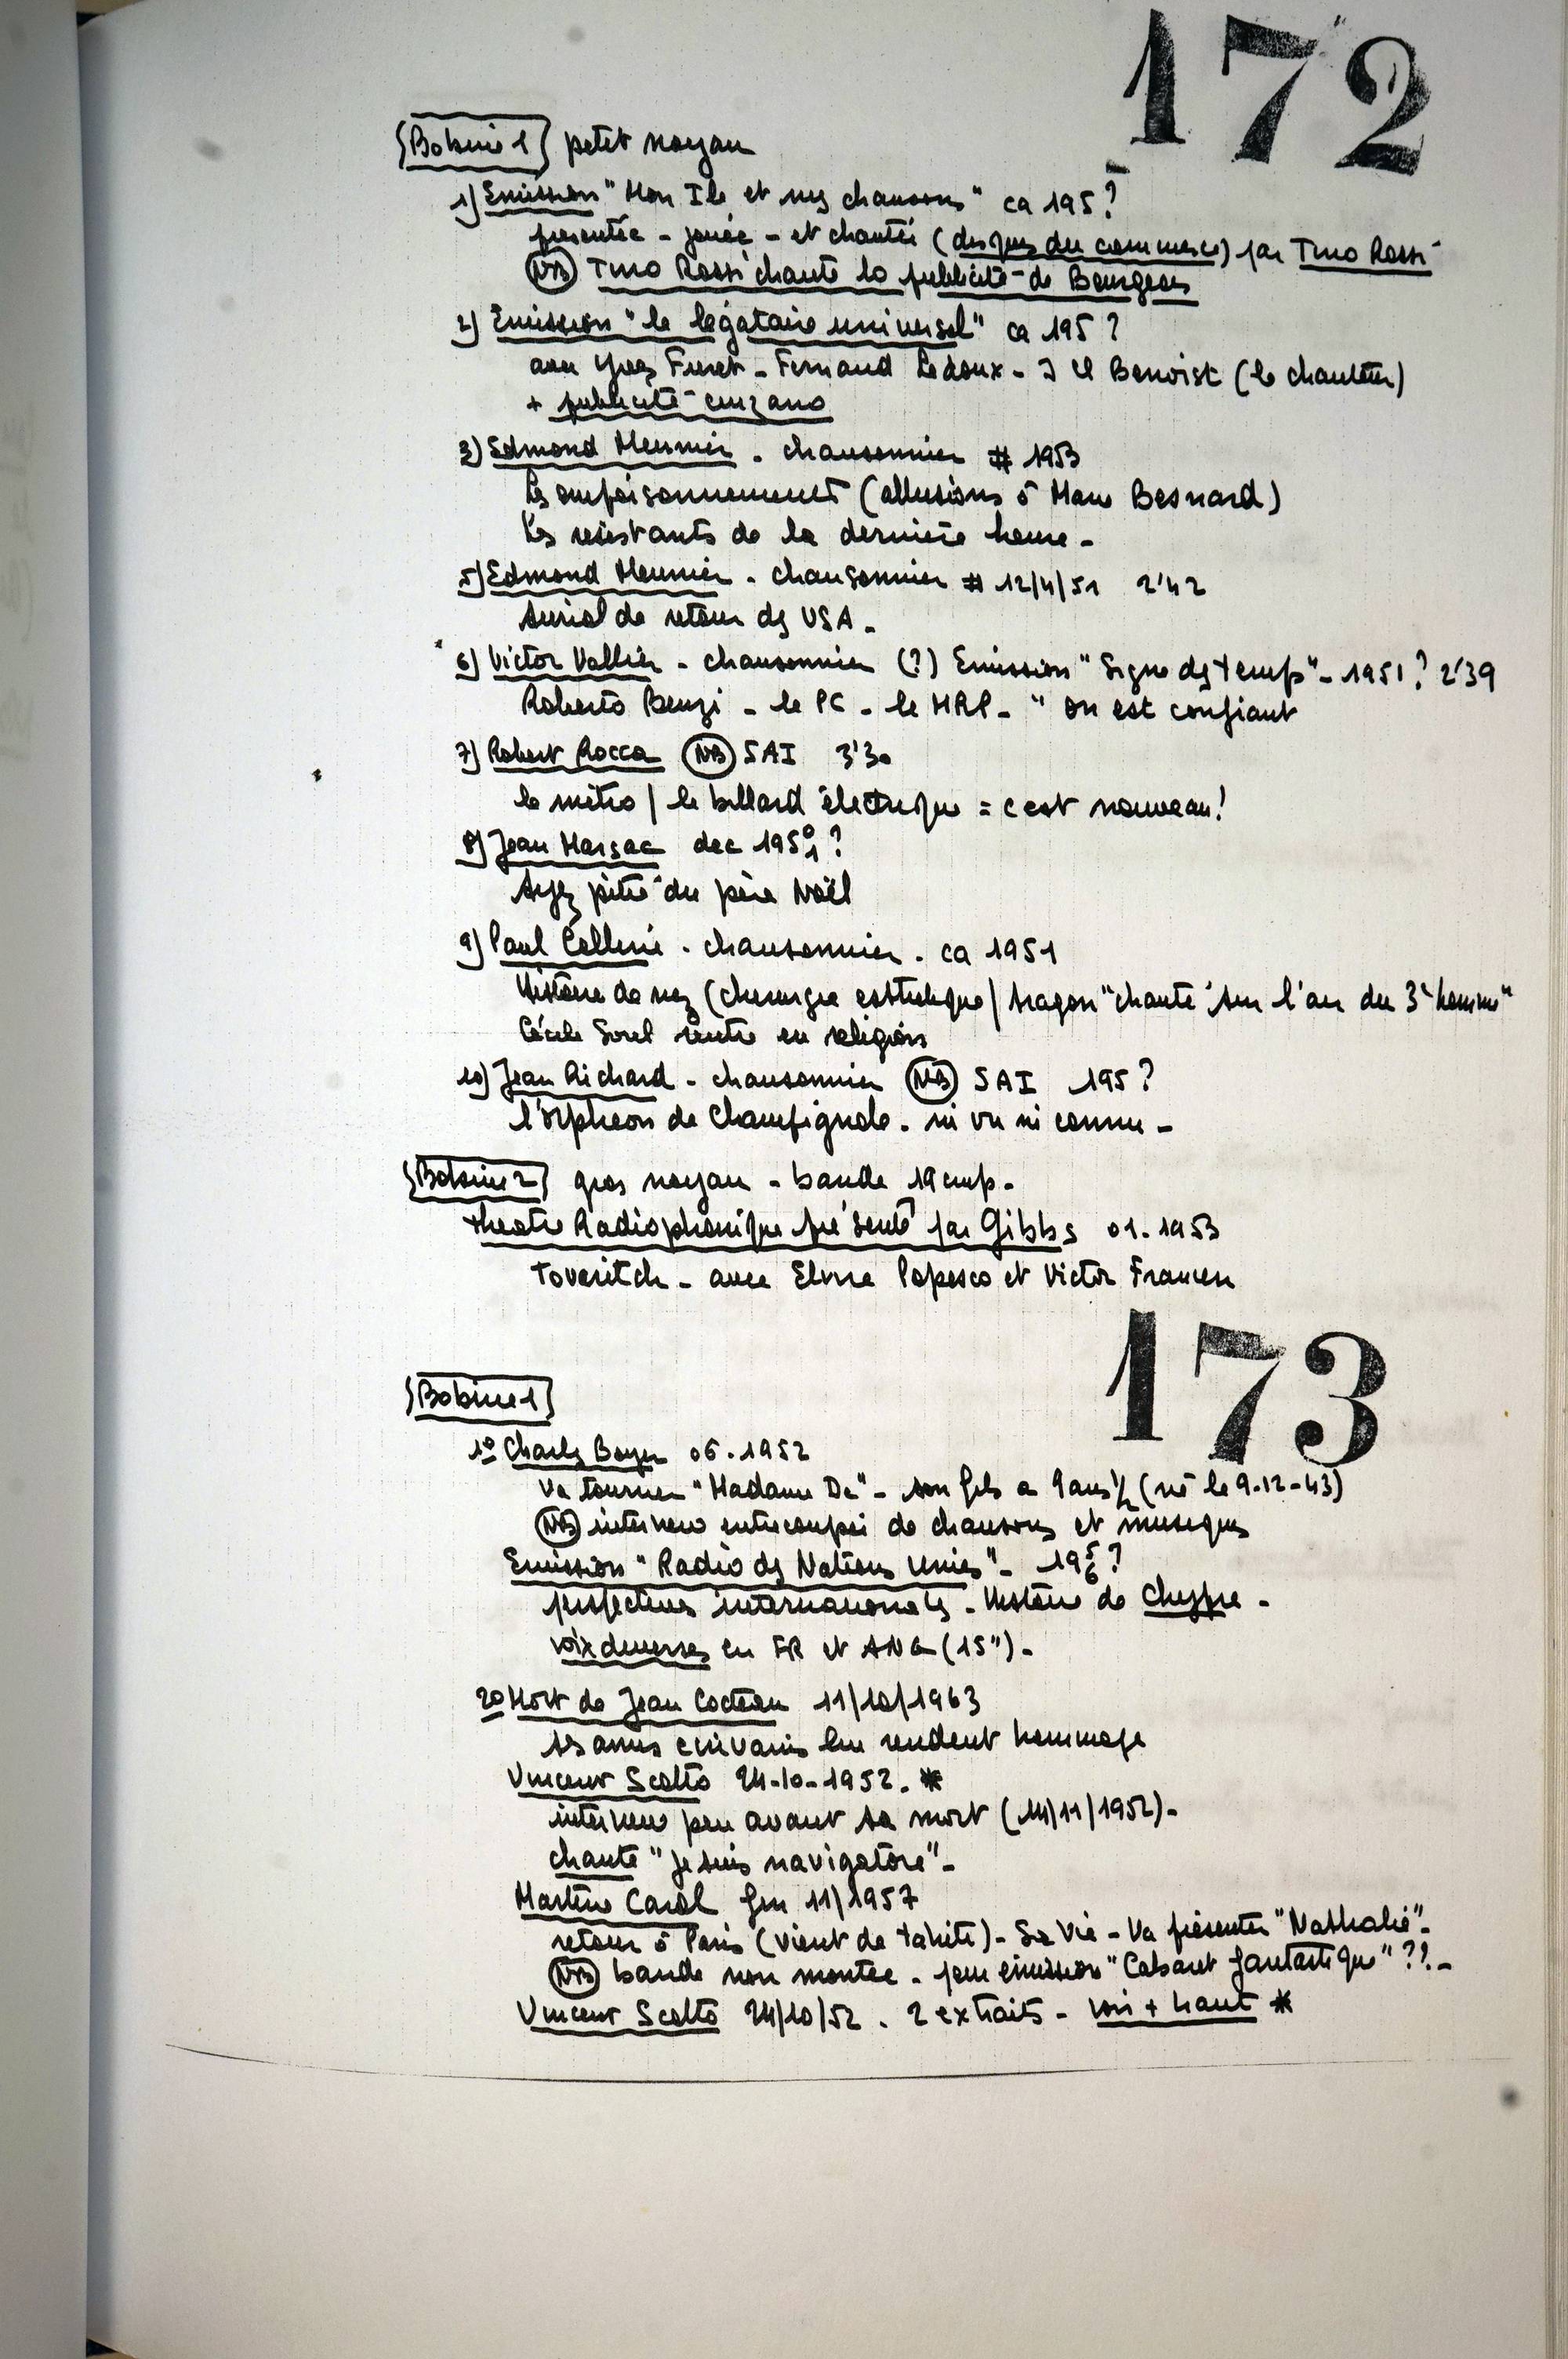 172
Bobine 1 petit noyau
1) Emission "Mon Ile et mes chansons" ca 195?
présentée - jouée - et chantée (disques du commerce) par Tino Rossi
NB Tino Rossi chante la publicité de Bourgeois
2) Emission "le légataire universel" ca 195?
avec Yves Furet - Fernand Ledoux - J M Benoist (le chanteur)
+ publicité cinzano
3) Edmond Meunier - chansonnier # 1953
Les empoisonnements (allusions à Marie Besnard)
Les résistants de la dernière heure -
5) Edmond Meunier - chansonnier # 12/4/51 2'42
Auriol de retour des USA -
6) Victor Vallier - chansonnier (?) Emission "Signe des temps" - 1951? 2'39
Roberto Benzi - le PC - le MRP - " on est confiant
7) Robert Rocca NB SAI 3'30
le métro / le billard électrique = c'est nouveau!
8) Jean Marsac dec 1950/1?
Ayez pitié du père Noël
9) Paul Colline - chansonnier - ca 1951
Histoire de nez (chirurgie esthétique / Aragon "chante" sur l'air du 3e homme"
Cécile Sorel rentre en religion
10) Jean Richard - chansonnier NB SAI 195?
l'orpheon de Champignole - ni vu ni connu -
Bobine 2 gros noyau - bande 19 cmps -
theatre Radiophonique présenté par Gibbs 01.1953
Tovaritch - avec Elvire Popesco et Victor Francen
173
Bobine 1
1º Charles Boyer 06.1952
Va tourner "Madame De" - son fils a 9 ans 1/2 (né le 9-12-43)
NB interview entrecoupée de chansons et musiques
Emission "Radio des Nations Unies" - 195/6?
perspectives internationales - Histoire de Chypre -
voix diverses en FR et ANG (15") -
2º Mort de Jean Cocteau 11/10/1963
ses amis écrivains lui rendent hommage
Vincent Scotto 24-10-1952. *
interview peu avant sa mort (14/11/1952) -
chante "je suis navigatore" -
Martine Carol fin 11/1957
retour à Paris (vient de tahiti) - Sa Vie - Va présenter "Nathalie" -
NB bande non montée - pour émission "Cabaret fantastique" ??. -
Vincent Scotto 24/10/52 - 2 extraits - voir + haut *